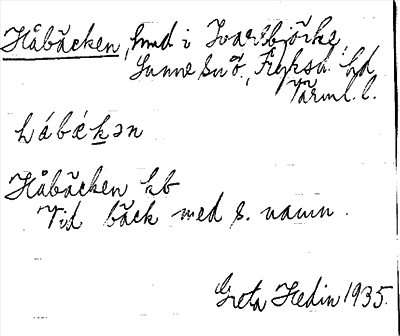 Håbäcken, hmd i Ivarsbjörke,
Sunne sn, Fryksd. hd
Värml. l.
hábák̲ən
Håbäcken hb
Vid bäck med s. namn.
Greta Hedin 1935.